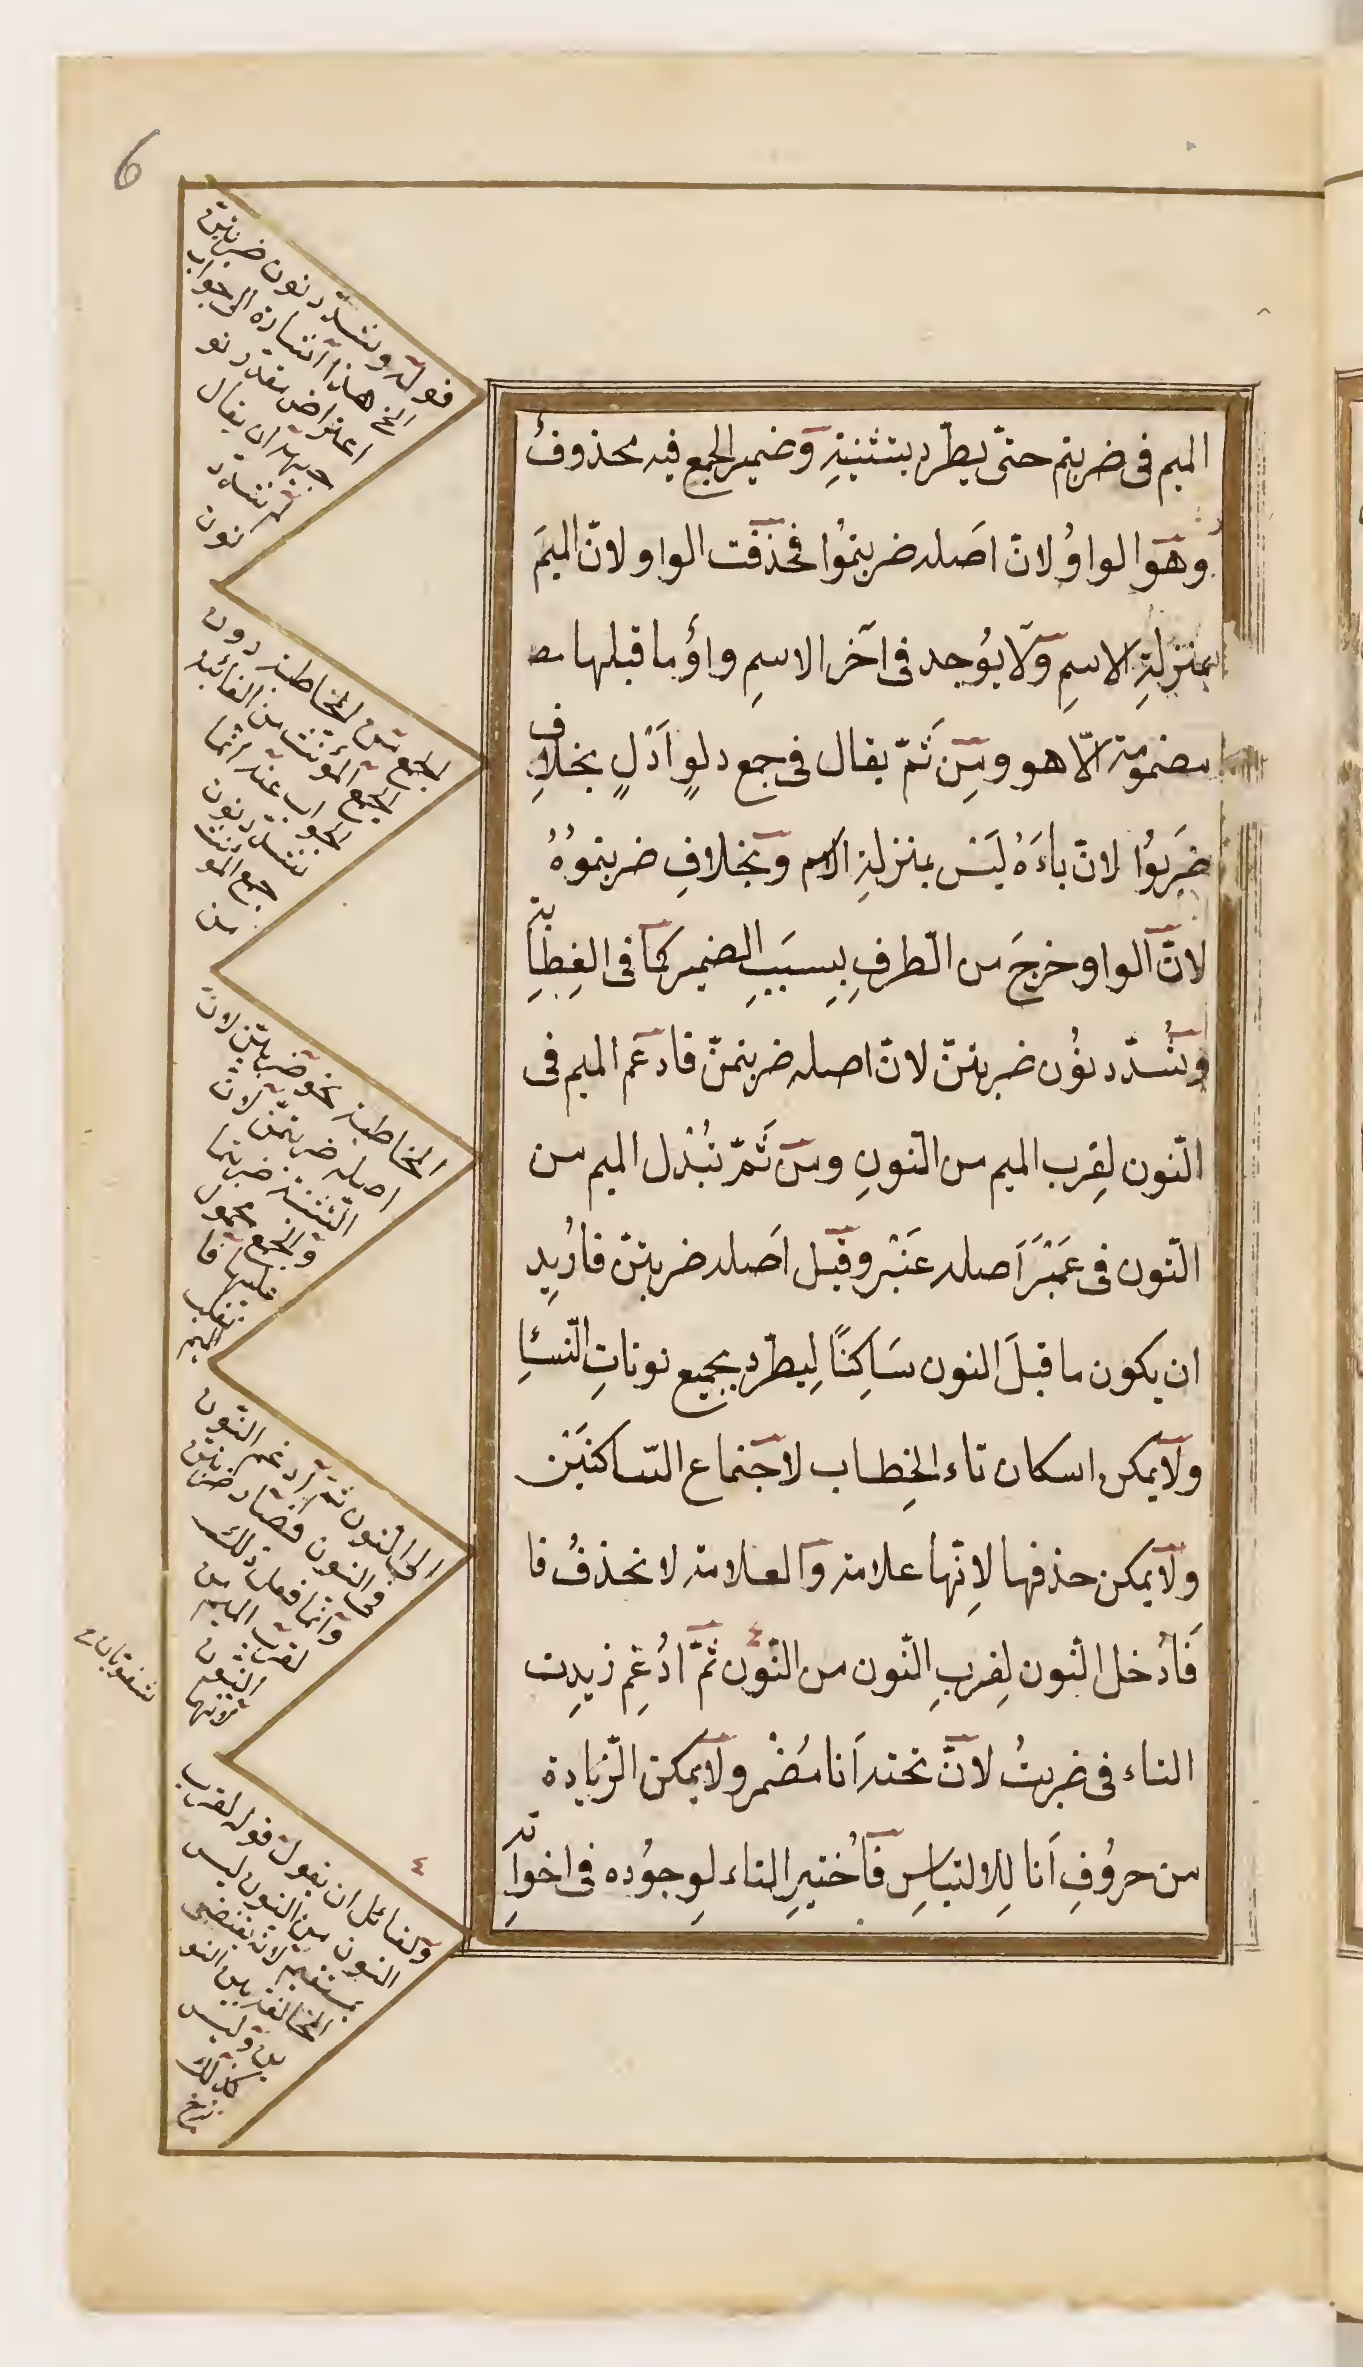 6
الميم فى ضربتم حتّى يطّرد بتثنيةِ وضمير الجمع فيه محذوفٌ
وهو الواوُ لانّ اصَله ضربتمُوا فحذفت الواو ولانّ الميمَ
بمنزلةِ الاسمِ ولا يوُجد فى آخر الاسمِ واوٌ ما قبلها مـ
مضمومة الّا هو ومِن ثَمّ يقال فى جمع دلوٍ اَدْلٍ بخلافِ
ضَرَبوُا لانّ باءَهُ ليَس بمنزلةِ الاسم وبخلافِ ضربتموُهُ
لانّ الواو خرجَ من الطّرفِ بِسبَبِ الضمير كما فى العِظايةِ
وتُشدّد نوُن ضربتنّ لانّ اصله ضربتمنّ فادغم الميم فى
النّون لِقرب الميم من النّونِ ومن ثَمّ تبُدل الميم من
النّون فى عَمْبَر اَصله عَنْبر وقيل اَصله ضربتنْ فاُريِد
ان يكون ما قبلَ النون سَاكِنًا لِيطّرد بجميع نوناتِ النّساءِ
ولا يمكن اسكان تاء الخِطاب لاجتماع السّاكنَيْن
ولا يمكن حذفها لانّها علامة والعلامة لا تحذفُ فا
فَاُدخل النّون لِقربِ النّون من النّون ثمّ ادُغِم زيدِت
التاء فى ضربتُ لانّ تحته اَنا مُضْمر ولا يمكن الزّيادة
من حروُفِ اَنا لِلالتباسِ فاُختيرِ التاء لوِجوُده فى اخواتِه
قوله وتشدّد نون ضربتنّ
الخ هذا اشارة الى جواب
اعتراض مقدّر تو
جيهه ان يقال
لم تشدّد
نون
الجمع من المخاطبة دون
الجمع المؤنّث من الغائبة
الجواب عنه انّما
تشدّد نون
جمع المؤنث
من
المخاطبة نحو ضربتنّ لانّ
اصله ضربتمن لانّ
التّثنية ضربتما
والجمع محمول
عليها فا
نقلب
الميم
الى النّون ثم ادغم النّون
فى النون فصار ضربتنّ
وانّما فعل ذلك
لقرب الميم من
النّون
لانّها
شفويّان
ولقائل ان يقول قوله لقرب
النون من النون ليس
بمستقيم لانّه يقتضى
المخالفة بين النو
نين وليس
كذلك